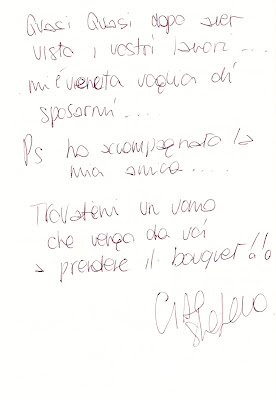 Quasi Quasi dopo aver
vista i vostri lavori....
mi è venuta voglia di
sposarmi....
Ps ho accompagnato la
mia amica....
Trovatemi un uomo
che venga da voi
a prendere il bouquet!!